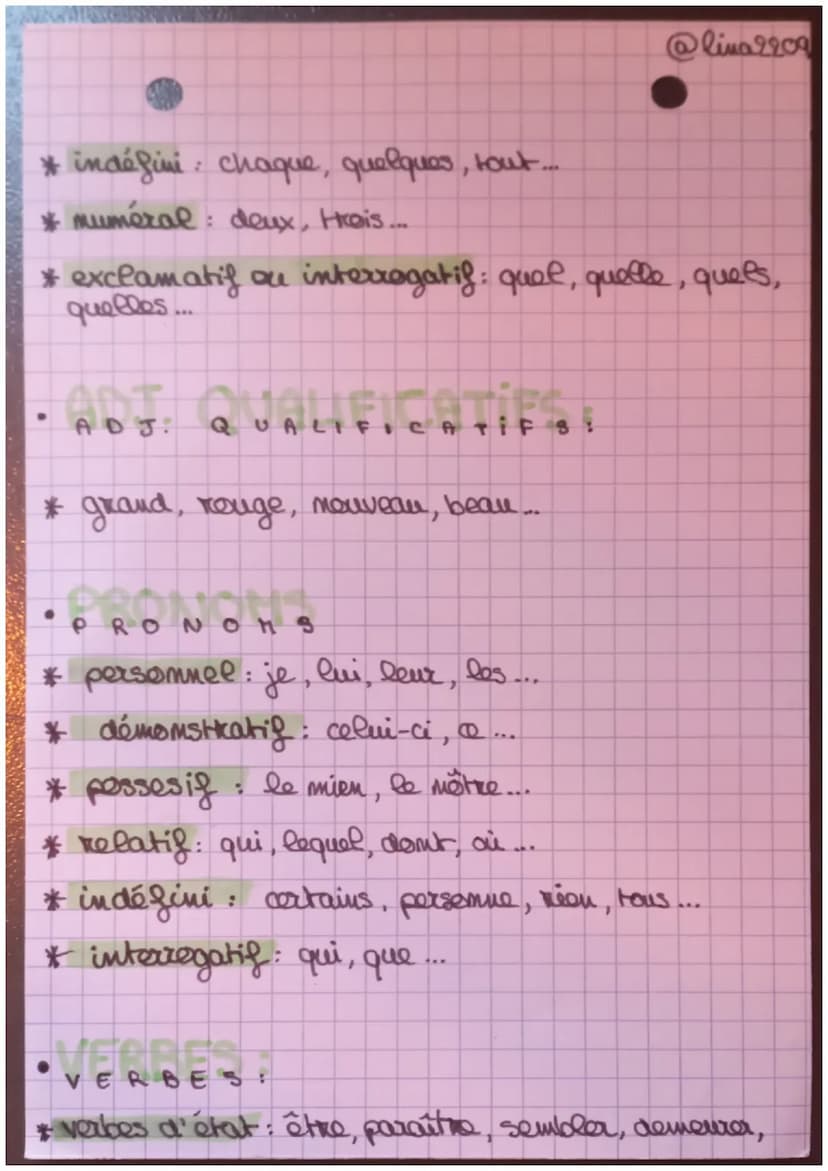 @lina2209
* indéfini : chaque, quelques, tout...
* numéral : deux, trois...
* exclamatif ou interrogatif : quel, quelle, quels,
quelles...
• ADJ. QUALIFICATIFS :
ADJ. QUALIFICATIFS :
* grand, rouge, nouveau, beau...
• PRONOMS
PRONOMS
* personnel : je, lui, leur, les...
* démonstratif : celui-ci, ce...
* possesif : le mien, le nôtre...
* relatif : qui, lequel, dont, où...
* indéfini : certains, personne, rien, tous...
* interrogatif : qui, que...
• VERBES :
VERBES :
* verbes d'état : être, paraître, sembler, demeurer,